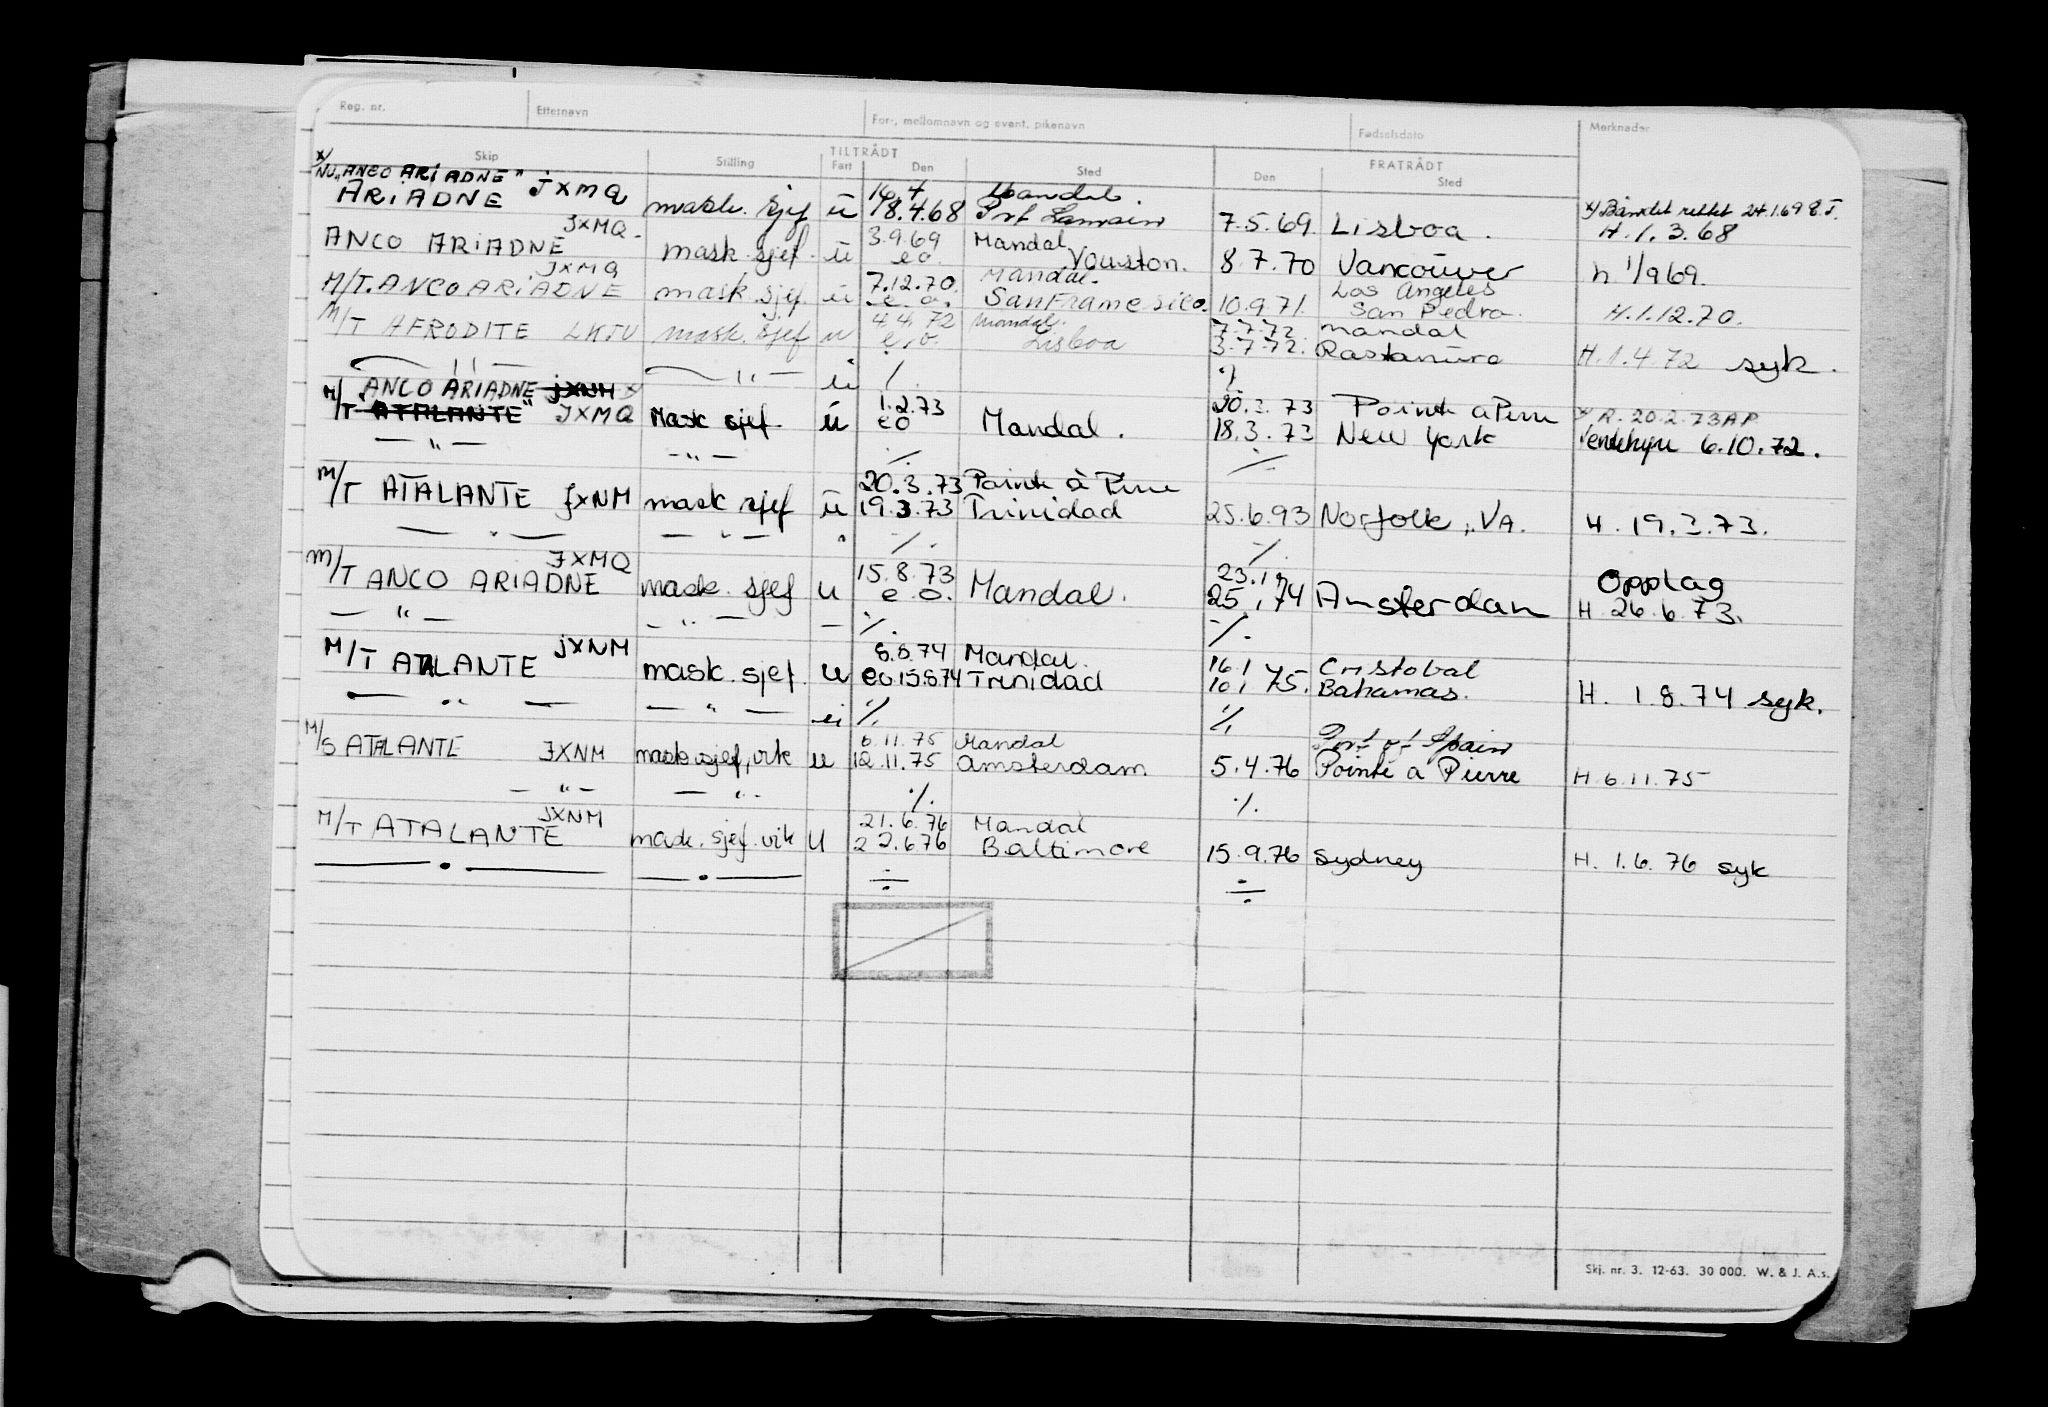 Reg. nr. Etternavn For-, mellomnavn og event. pikenavn Fødselsdato Merknader
Skip Stilling TILTRÅDT Fart Den Sted FRATRÅDT Den Sted
x/ NU „ANCO ARIADNE" 16.4 Mandal.
ARIADNE JXMQ mask. sjef u 18.4.68 7.5.69 Lisboa. x/ Båndet rettet 24.1.69
H. 1. 3. 68
JXMQ. 3.9.69 Mandal
ANCO ARIADNE mask. sjef. u eo. Houston. 8.7.70 Vancouver h 1/9 69.
JXMQ 7.12.70. Mandal. Los Angeles
M/T. ANCO ARIADNE mask sjef u e.o. San Francisco. 10.9.71. San Pedro. H.1.12.70.
4.4.72 Mandal. 7.7.72 Mandal
M/T AFRODITE LKTU mask. sjef u e.o. Lisboa 3.7.72. Rastanura H.1.4.72 syk.
— " — — " — u ·/. ·/.
„ANCO ARIADNE JXNM x/ 1.2.73 20.3.73 Pointe a Pierre x/ R. 20.2.73 AP
M/T ATALANTE" JXMQ Mask sjef. u eo Mandal. 18.3.73 New York 6.10.72.
— " — — " — ·/. ·/.
20.3.73 Pointe à Pierre
M/T ATALANTE JXNM mask sjef u 19.3.73 Trinidad 25.6.93 Norfolk, VA. H. 19.3.73.
— " — — " — " ·/. ·/.
JXMQ 15.8.73 23.1, Opplag
M/T ANCO ARIADNE mask. sjef u e.o. Mandal. 25,.74 Amsterdam H. 26.6.73.
— " — — " — — ·/. ·/.
JXNM 8.8.74 Mandal. 16.1 Cristobal
M/T ATALANTE mask. sjef. u eo 15.8.74 Trinidad 10,1 75. Bahamas. H. 1.8.74 syk.
— " — — " — u ·/. ·/.
6.11.75 Mandal Port of Spain
M/S ATALANTE JXNM mask sjef, vik u 12.11.75 Amsterdam 5.4.76 Pointe a Pierre H 6.11.75
— " — — " — ·/. ·/.
JXNM 21.6.76 Mandal
M/T ATALANTE mask. sjef. vik U 22.6.76 Baltimore 15.9.76 Sydney H. 1.6.76 syk
— " — — " — ÷ ÷
Skj. nr. 3. 12-63. 30 000. W. & J. A.s.